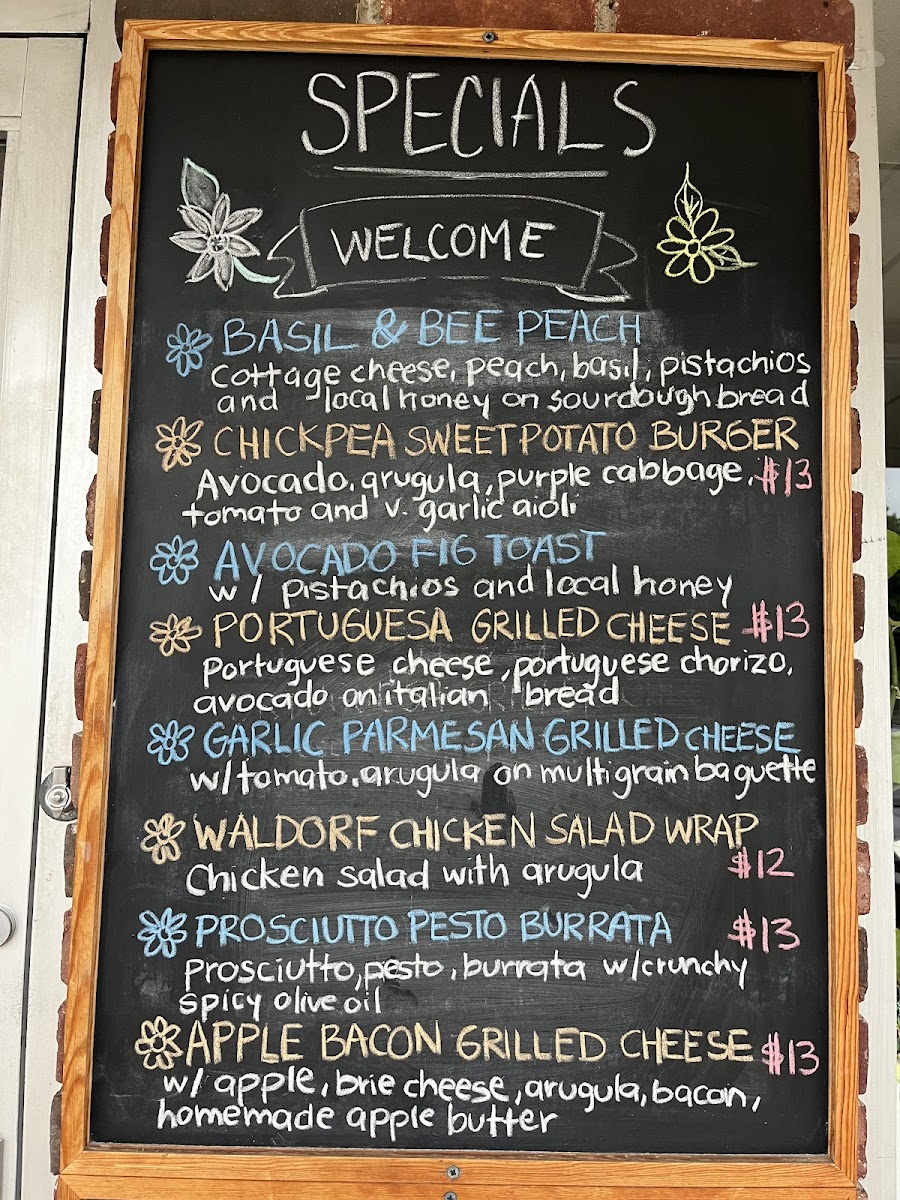 SPECIALS
WELCOME
BASIL & BEE PEACH
Cottage cheese, peach, basil, pistachios
and local honey on sourdough bread
CHICKPEA SWEET POTATO BURGER
Avocado, arugula, purple cabbage, $13
tomato and v. garlic aioli
AVOCADO FIG TOAST
w/ pistachios and local honey
PORTUGUESA GRILLED CHEESE $13
Portuguese cheese, portuguese chorizo,
avocado on italian bread
GARLIC PARMESAN GRILLED CHEESE
w/ tomato, arugula on multigrain baguette
WALDORF CHICKEN SALAD WRAP
Chicken salad with arugula $12
PROSCIUTTO PESTO BURRATA $13
Prosciutto, pesto, burrata w/ crunchy
spicy olive oil
APPLE BACON GRILLED CHEESE $13
w/ apple, brie cheese, arugula, bacon,
homemade apple butter